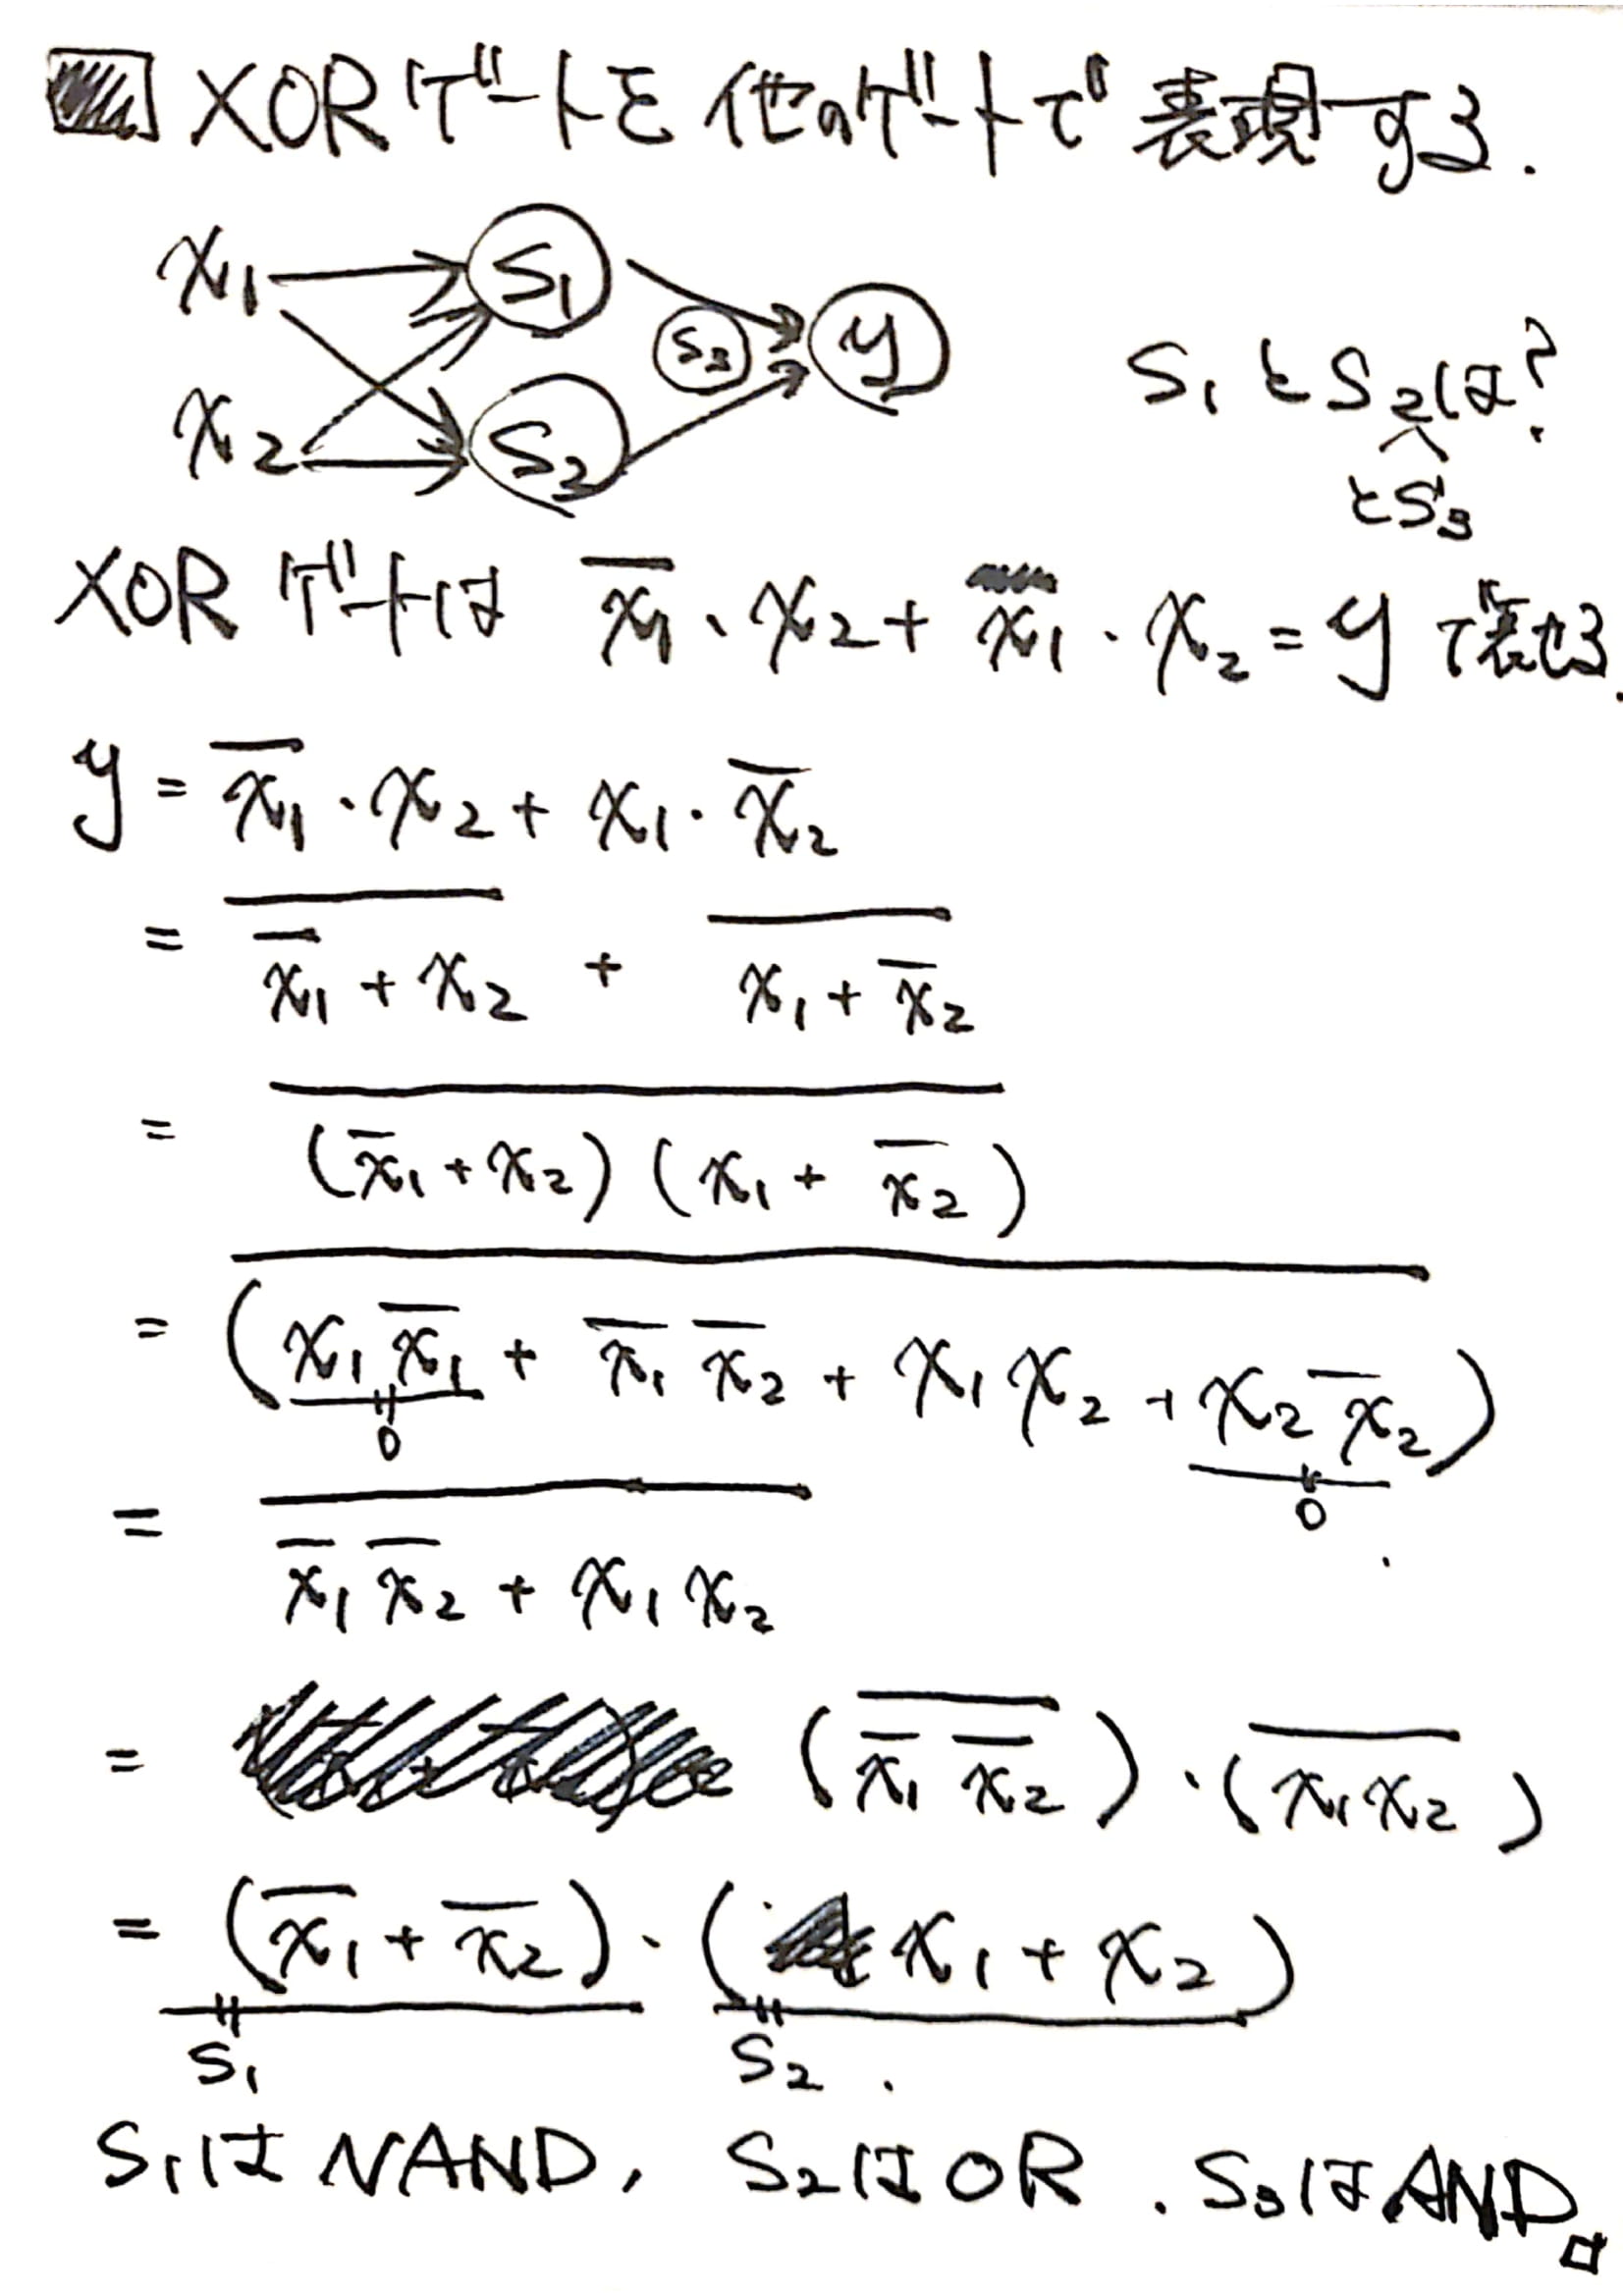 XORゲートを他のゲートで表現する.
x₁ S₁
S₃ y
x₂ S₂
S₁とS₂は?
とS₃
XORゲートは x̅₁・x₂ + x₁・x₂ = y で表せる.
y = x̅₁・x₂ + x₁・x̅₂
= \overline{\overline{x₁} + x₂} + \overline{x₁ + \overline{x₂}}
= \overline{(\overline{x}₁ + x₂)(x₁ + \overline{x₂})}
= \overline{(x₁\overline{x₁} + \overline{x₁}\,\overline{x₂} + x₁x₂ + x₂\overline{x₂})}
0 0
= \overline{\overline{x₁}\,\overline{x₂} + x₁x₂}
= (\overline{\overline{x₁}\,\overline{x₂}})・(\overline{x₁x₂})
= (\overline{x₁} + \overline{x₂})・(x₁ + x₂)
S₁ S₂.
S₁はNAND, S₂はOR. S₃はAND。